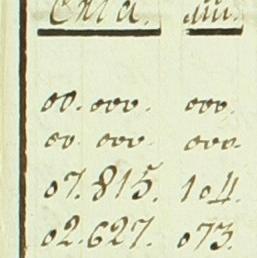 00.000. 000.
00.000. 000.
07.815. 104.
02.627. 073.